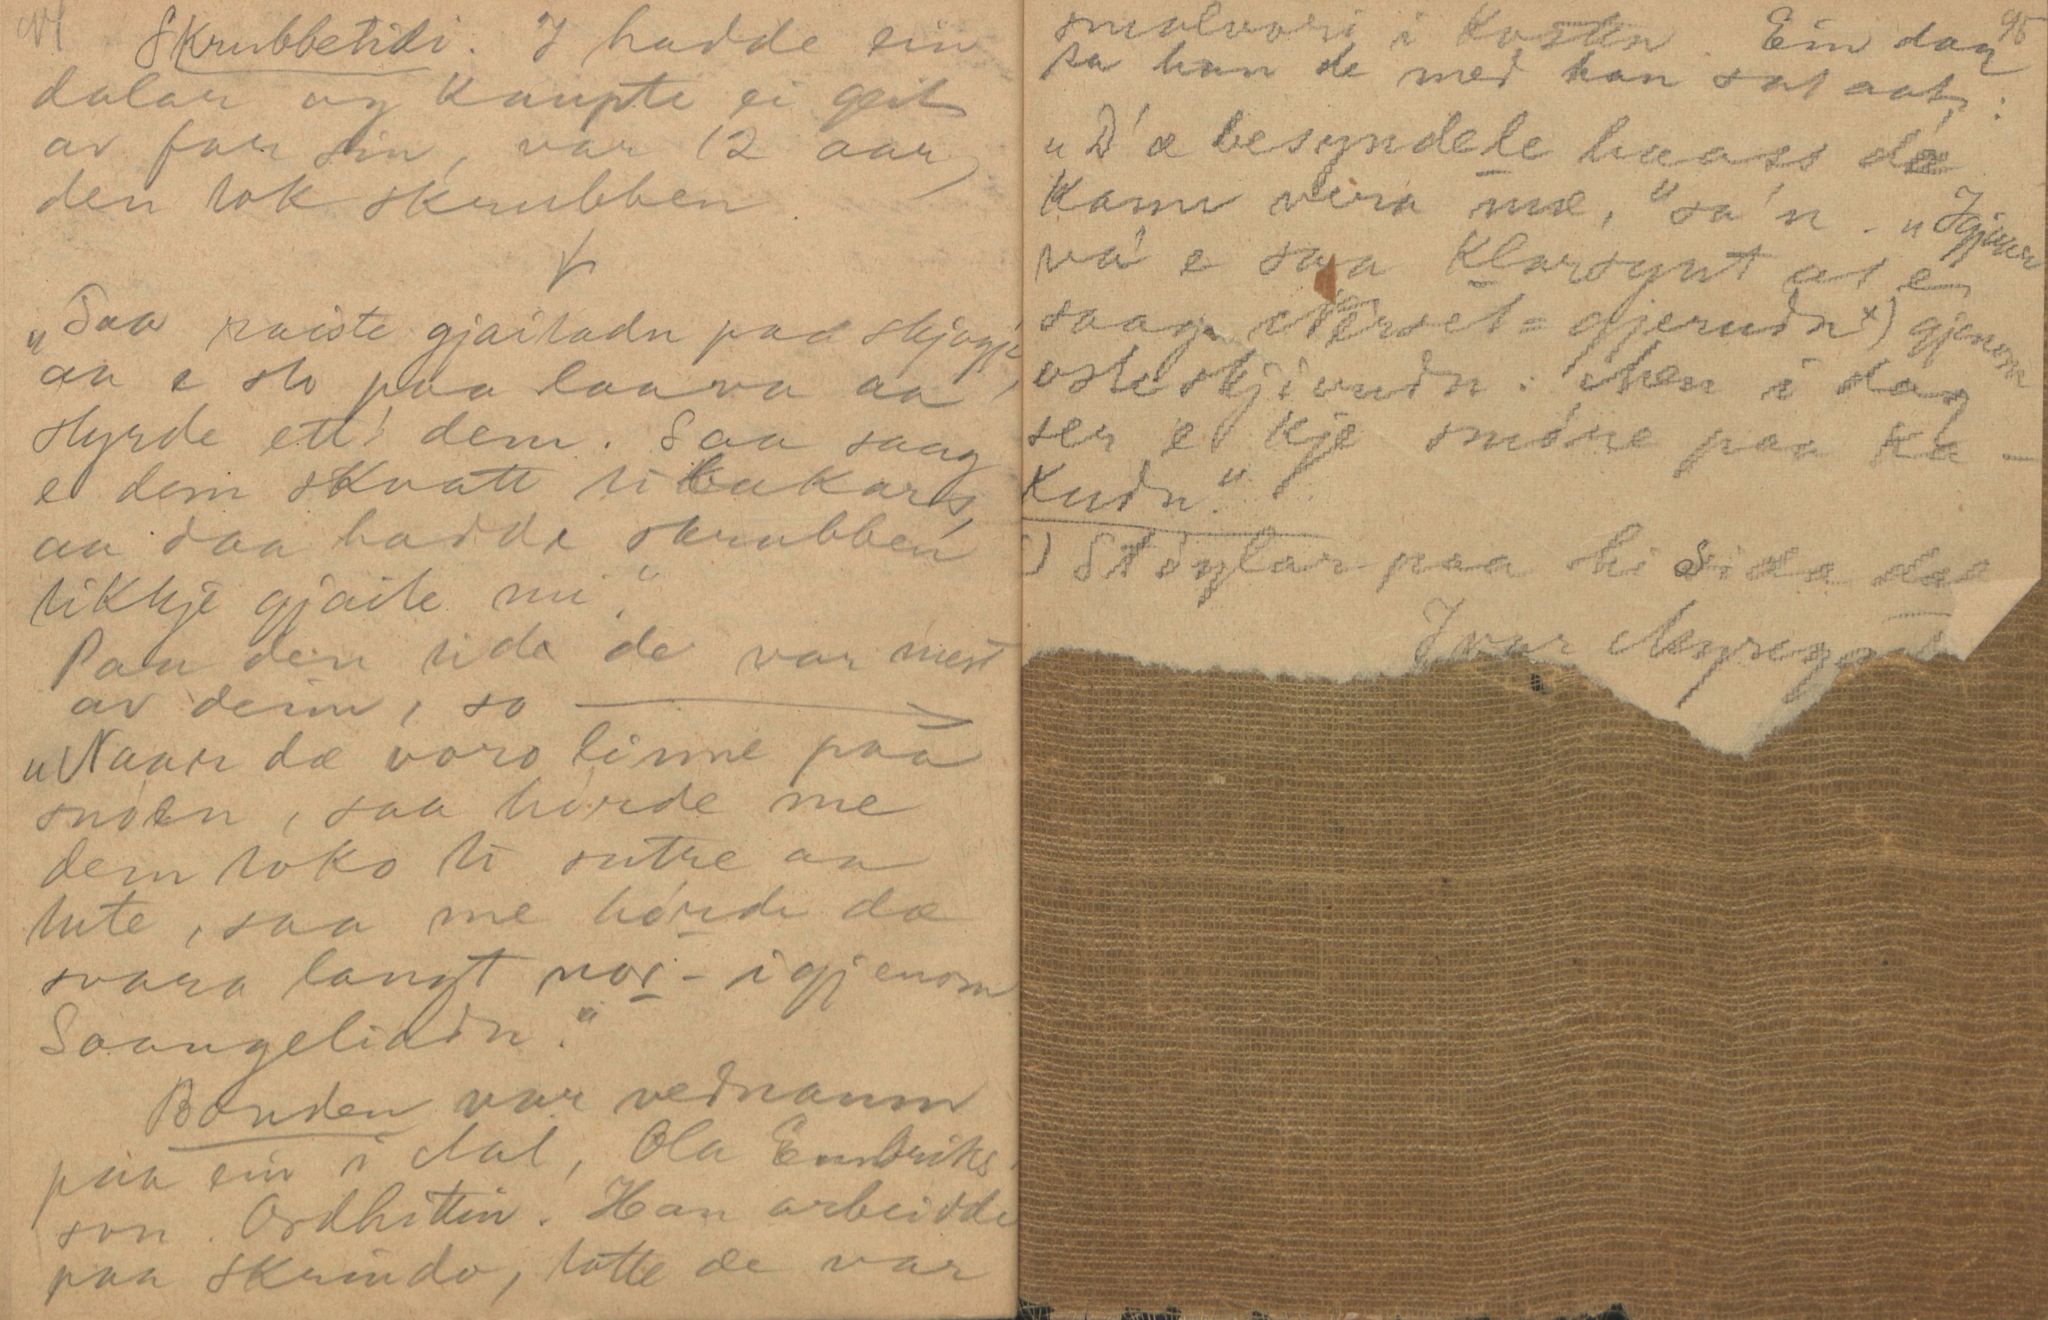 94
Skrubbetidi. I hadde ein
dalar og kaupte ei geit
av far sin, var 12 aar,
den tok skrubben.
"Saa raiste gjaitadn paa skjøgji,
aa e sto paa laava aa
styrde ett' dem. Saa saag
e dem skvatt ti bakars,
aa daa hadde skrubben
tikkje gjaite mi."
Paa den tide de var mest
av deim, so
"Naar dæ voro linne paa
snoen, saa hørde me
dem toko ti sutre aa
tute, saa me hørde dæ
svara langt nor- igjenom
Saangeliadn."
Bonden var vednamn
paa ein i Aal, Ola Embriks-
son. Ordhittin. Han arbeidde
paa Skrindo, totte de var
95
smalvori i kosten. Ein dag
sa han de med han sat aat:
"D'æ besyndele haass dæ
kann vera mæ," sa'n. "Igjaar
va e saa klarsynt at e
saag Merset=gjerudn x) gjenom
osteskjivudn. Men i dag
ser e kje smøre paa ka-
kudn."
x) Støylar paa hi sida dal
Ivar Myregaar